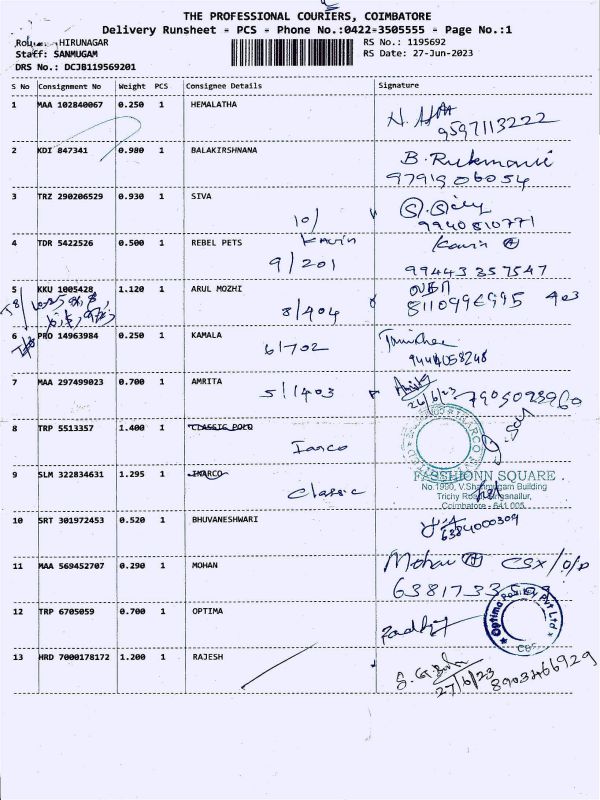 THE PROFESSIONAL COURIERS, COIMBATORE
Delivery Runsheet - PCS - Phone No.:0422-3505555 - Page No.:1
HIRUNAGAR
RS No.: 1195692
Staff: SANMUGAM
RS Date: 27-Jun-2023
DRS No.: DCJB119569201
S No Consignment No Weight PCS Consignee Details Signature
1 MAA 102840067 0.250 1 HEMALATHA
9597113222
2 KDI 847341 0.980 1 BALAKIRSHNANA
B. Rukmani
9791906054
3 TRZ 290206529 0.930 1 SIVA
10/
9940810771
4 TDR 5422526 0.500 1 REBEL PETS
Kavin
Kavin
9/201
99443 357547
5 KKU 1005428 1.120 1 ARUL MOZHI
8/404
403
6 PRO 14963984 0.250 1 KAMALA
6/702
9444058248
7 MAA 297499023 0.700 1 AMRITA
5/1403
26/6/23
8 TRP 5513357 1.400 1 CLASSIC POLO
Inarco
9 SLM 322834631 1.295 1 INARCO
Classic
FASSHIONN SQUARE
No.1900, V.Shanmugam Building
Coimbatore - 641 005.
10 SRT 301972453 0.520 1 BHUVANESHWARI
6384000309
11 MAA 569452707 0.290 1 MOHAN
Mohan
12 TRP 6705059 0.700 1 OPTIMA
Pvt Ltd
13 HRD 7000178172 1.200 1 RAJESH
27/6/23 8903466929